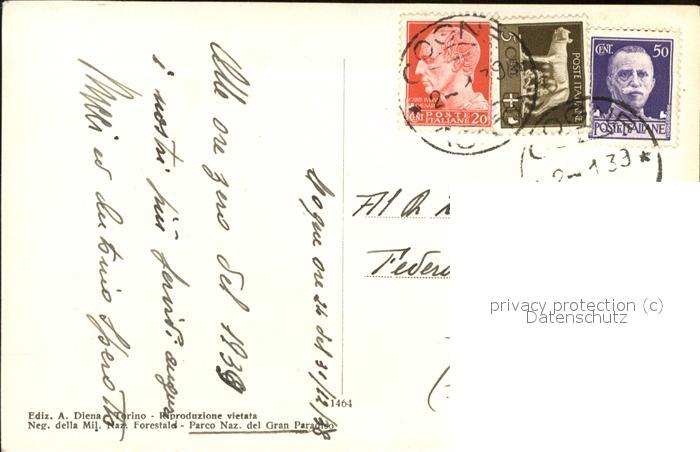 Cogne ore 24 del 31/12/38
Alle ore zero del 1939
i nostri più fervidi auguri
ed Antonio
Al
Federi
CENT.
POSTE
ITALIANE
20
5
CENT.
POSTE ITALIANE
CENT.
50
POSTE ITALIANE
COGNE
2-1 39
COGNE
2-1 39 *
privacy protection (c)
Datenschutz
1464
Ediz. A. Diena - Torino - Riproduzione vietata
Neg. della Mil. Naz. Forestale - Parco Naz. del Gran Paradiso